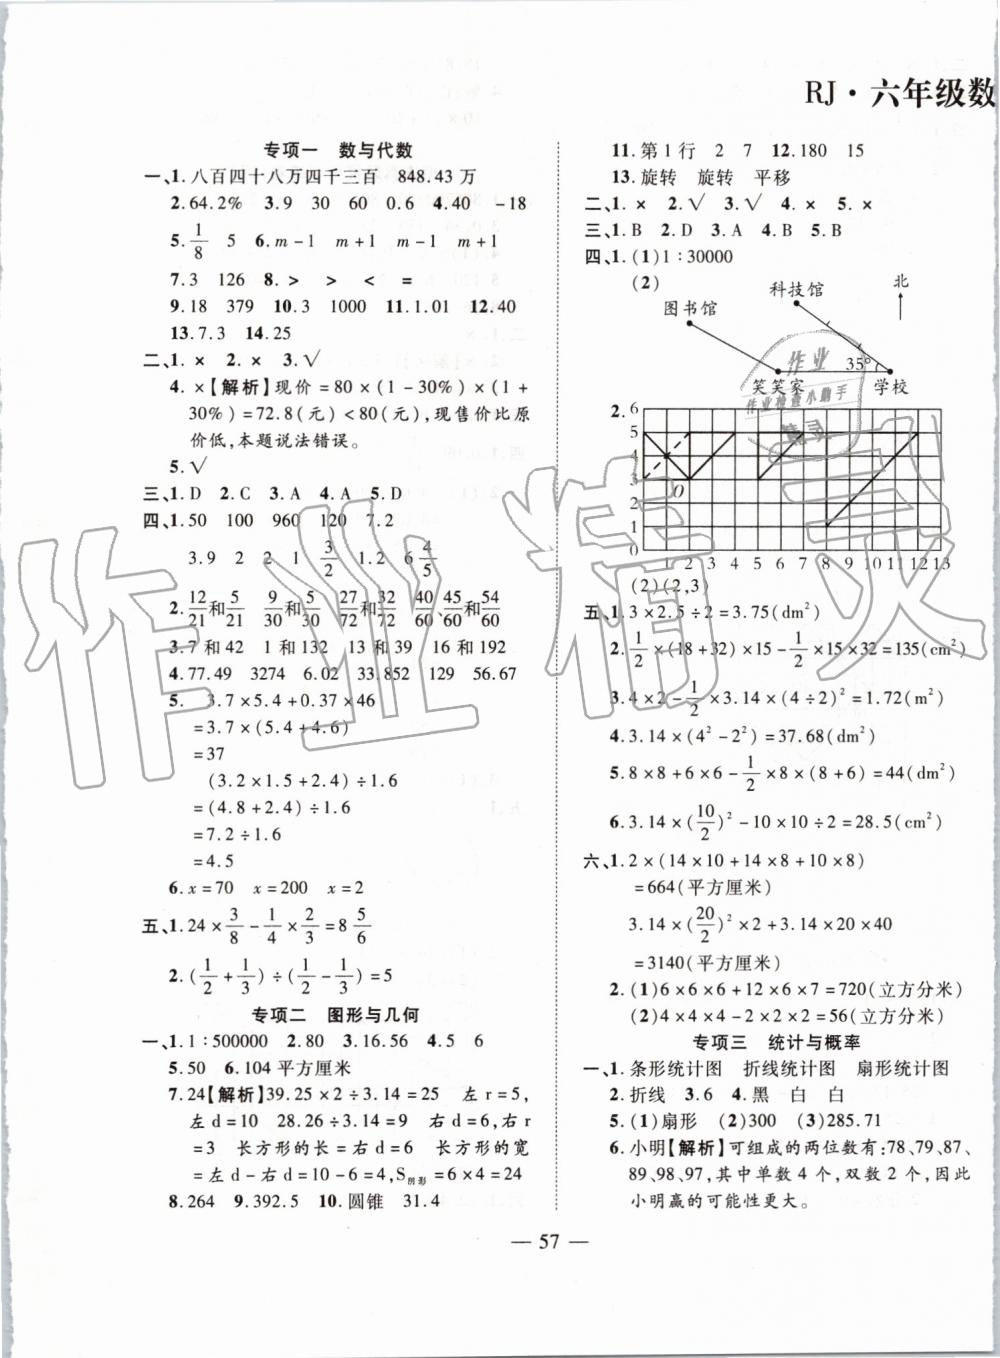 RJ·六年级数
专项一 数与代数
一、1.八百四十八万四千三百 848.43万
2.64.2% 3.9 30 60 0.6 4.40 -18
5.1/8 5 6.m-1 m+1 m-1 m+1
7.3 126 8.> > < =
9.18 379 10.3 1000 11.1.01 12.40
13.7.3 14.25
二、1.× 2.× 3.√
4.×【解析】现价=80×(1-30%)×(1+
30%)=72.8(元)<80(元),现售价比原
价低,本题说法错误。
5.√
三、1.D 2.C 3.A 4.A 5.D
四、1.50 100 960 120 7.2
3.9 2 2 1 3/2 1.2 6 4/5
2.12/21和5/21 9/30和5/30 27/72和32/72 40/60、45/60和54/60
3.7和42 1和132 13和39 16和192
4.77.49 3274 6.02 33.852 129 56.67
5. 3.7×5.4+0.37×46
=3.7×(5.4+4.6)
=37
(3.2×1.5+2.4)÷1.6
=(4.8+2.4)÷1.6
=7.2÷1.6
=4.5
6.x=70 x=200 x=2
五、1.24×3/8-1/4×2/3=8 5/6
2.(1/2+1/3)÷(1/2-1/3)=5
专项二 图形与几何
一、1.1∶500000 2.80 3.16.56 4.5 6
5.50 6.104平方厘米
7.24【解析】39.25×2÷3.14=25 左r=5,
左d=10 28.26÷3.14=9 右d=6,右r
=3 长方形的长=右d=6 长方形的宽
=左d-右d=10-6=4,S阴影=6×4=24
8.264 9.392.5 10.圆锥 31.4
11.第1行 2 7 12.180 15
13.旋转 旋转 平移
二、1.× 2.√ 3.√ 4.× 5.×
三、1.B 2.D 3.A 4.B 5.B
四、1.(1)1∶30000
(2)
科技馆
北
图书馆
35°
笑笑家 学校
2.6
5
4
3
2
1
0
O
1 2 3 4 5 6 7 8 9 10 11 12 13
(2)(2,3)
五、1.3×2.5÷2=3.75(dm²)
2.1/2×(18+32)×15-1/2×15×32=135(cm²)
3.4×2-1/2×3.14×(4÷2)²=1.72(m²)
4.3.14×(4²-2²)=37.68(dm²)
5.8×8+6×6-1/2×8×(8+6)=44(dm²)
6.3.14×(10/2)²-10×10÷2=28.5(cm²)
六、1.2×(14×10+14×8+10×8)
=664(平方厘米)
3.14×(20/2)²×2+3.14×20×40
=3140(平方厘米)
2.(1)6×6×6+12×6×7=720(立方分米)
(2)4×4×4-2×2×2=56(立方分米)
专项三 统计与概率
一、1.条形统计图 折线统计图 扇形统计图
2.折线 3.6 4.黑 白 白
5.(1)扇形 (2)300 (3)285.71
6.小明【解析】可组成的两位数有:78,79,87,
89,98,97,其中单数4个,双数2个,因此
小明赢的可能性更大。
— 57 —
作业精灵
作业
作业检查小助手
精灵